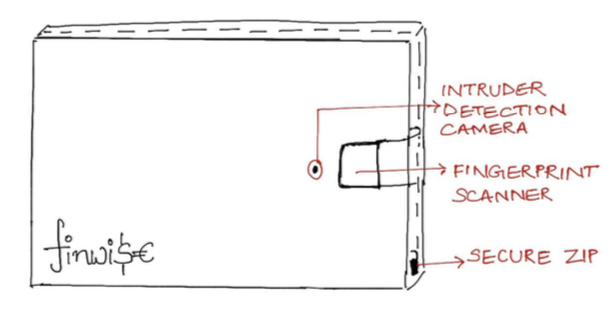 INTRUDER
DETECTION
CAMERA
FINGERPRINT
SCANNER
SECURE ZIP
finwi$€